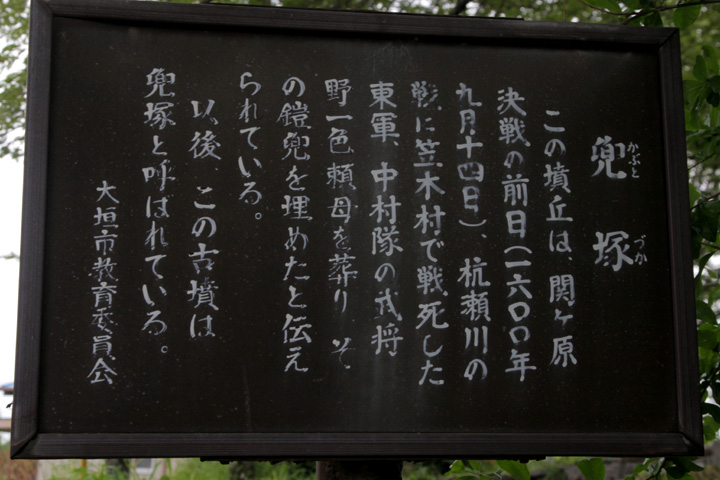 兜塚
かぶとづか
この墳丘は、関ヶ原
決戦の前日(一六〇〇年
九月十四日)、杭瀬川の
戦に笠木村で戦死した
東軍、中村隊の武将
野一色頼母を葬り そ
の鎧兜を埋めたと伝え
られている。
以後、この古墳は
兜塚と呼ばれている。
大垣市教育委員会